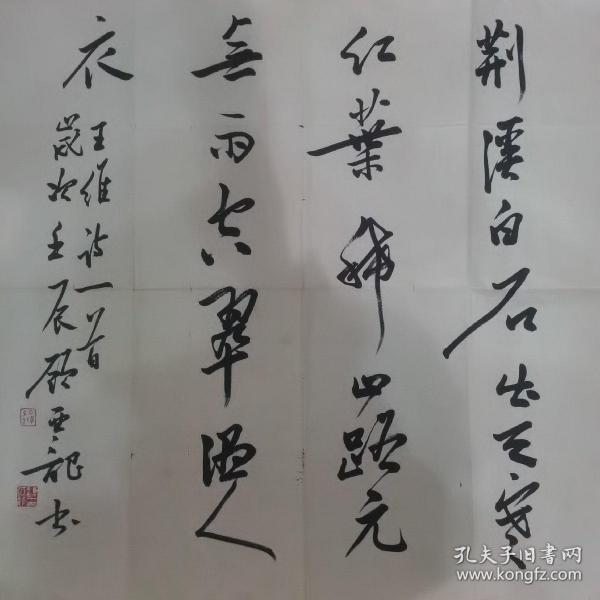 荆溪白石出天寒
红葉稀山路元
無雨空翠湿人
衣
王维诗一首
歲次壬辰顾亚龙书
孔夫子旧书网
www.kongfz.com